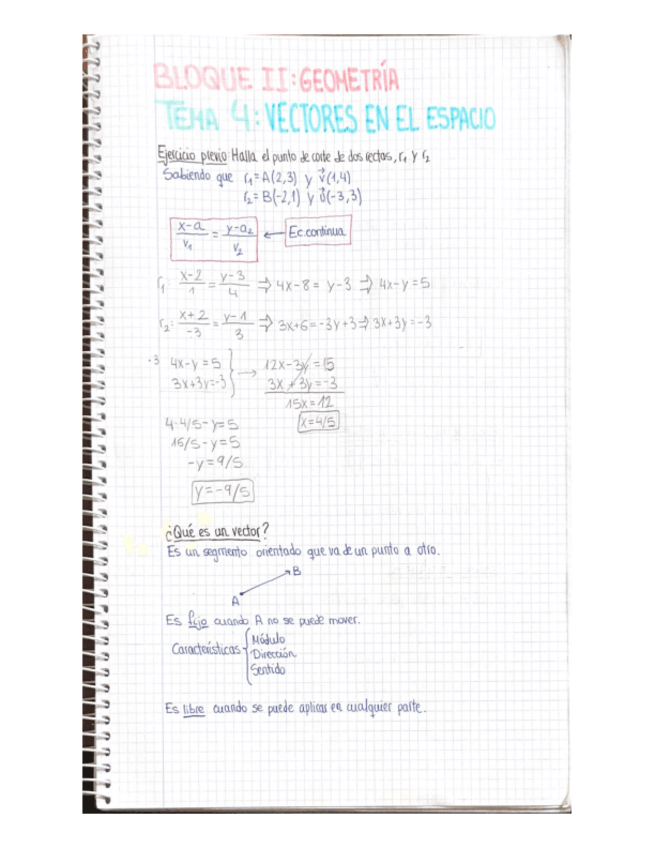 BLOQUE II: GEOMETRÍA
TEMA 4: VECTORES EN EL ESPACIO
Ejercicio previo: Halla el punto de corte de dos rectas, r₁ y r₂
Sabiendo que r₁ = A(2,3) y v⃗(1,4)
r₂ = B(-2,1) y u⃗(-3,3)
(x-a)/v₁ = (y-a₂)/v₂ ← Ec. continua
r₁: (x-2)/1 = (y-3)/4 ⇒ 4x-8 = y-3 ⇒ 4x-y = 5
r₂: (x+2)/-3 = (y-1)/3 ⇒ 3x+6 = -3y+3 ⇒ 3x+3y = -3
·3 4x-y = 5 } → 12x-3y = 15
3x+3y = -3 3x+3y = -3
15x = 12
4·4/5 - y = 5 x = 4/5
16/5 - y = 5
-y = 9/5
y = -9/5
¿Qué es un vector?
Es un segmento orientado que va de un punto a otro.
B
A
Es fijo cuando A no se puede mover.
Características { Módulo
Dirección
Sentido
Es libre cuando se puede aplicar en cualquier parte.